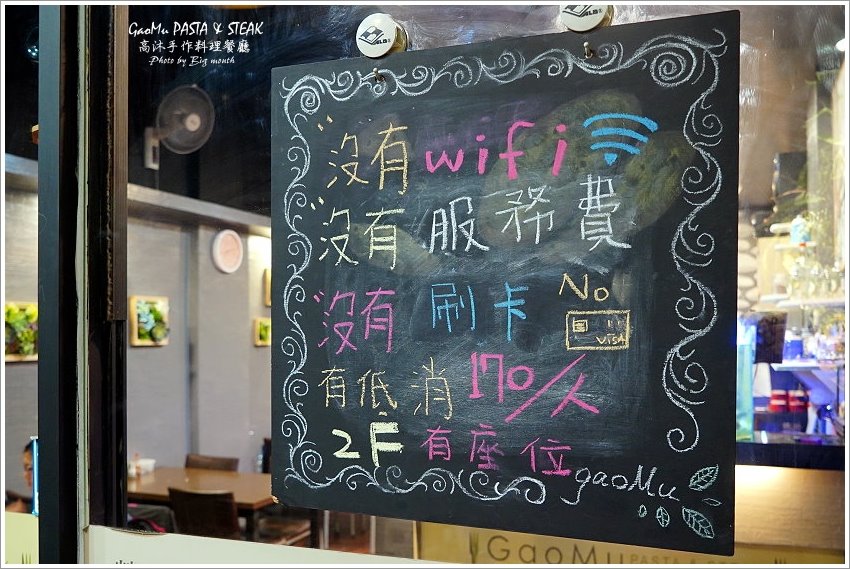 GaoMu PASTA & STEAK
高沐手作料理餐廳
Photo by Big mouth
沒有wifi
沒有 服務費
沒有 刷卡 No
VISA
有低消 170/人
2F 有座位
gaoMu
GaoMu PASTA & STE